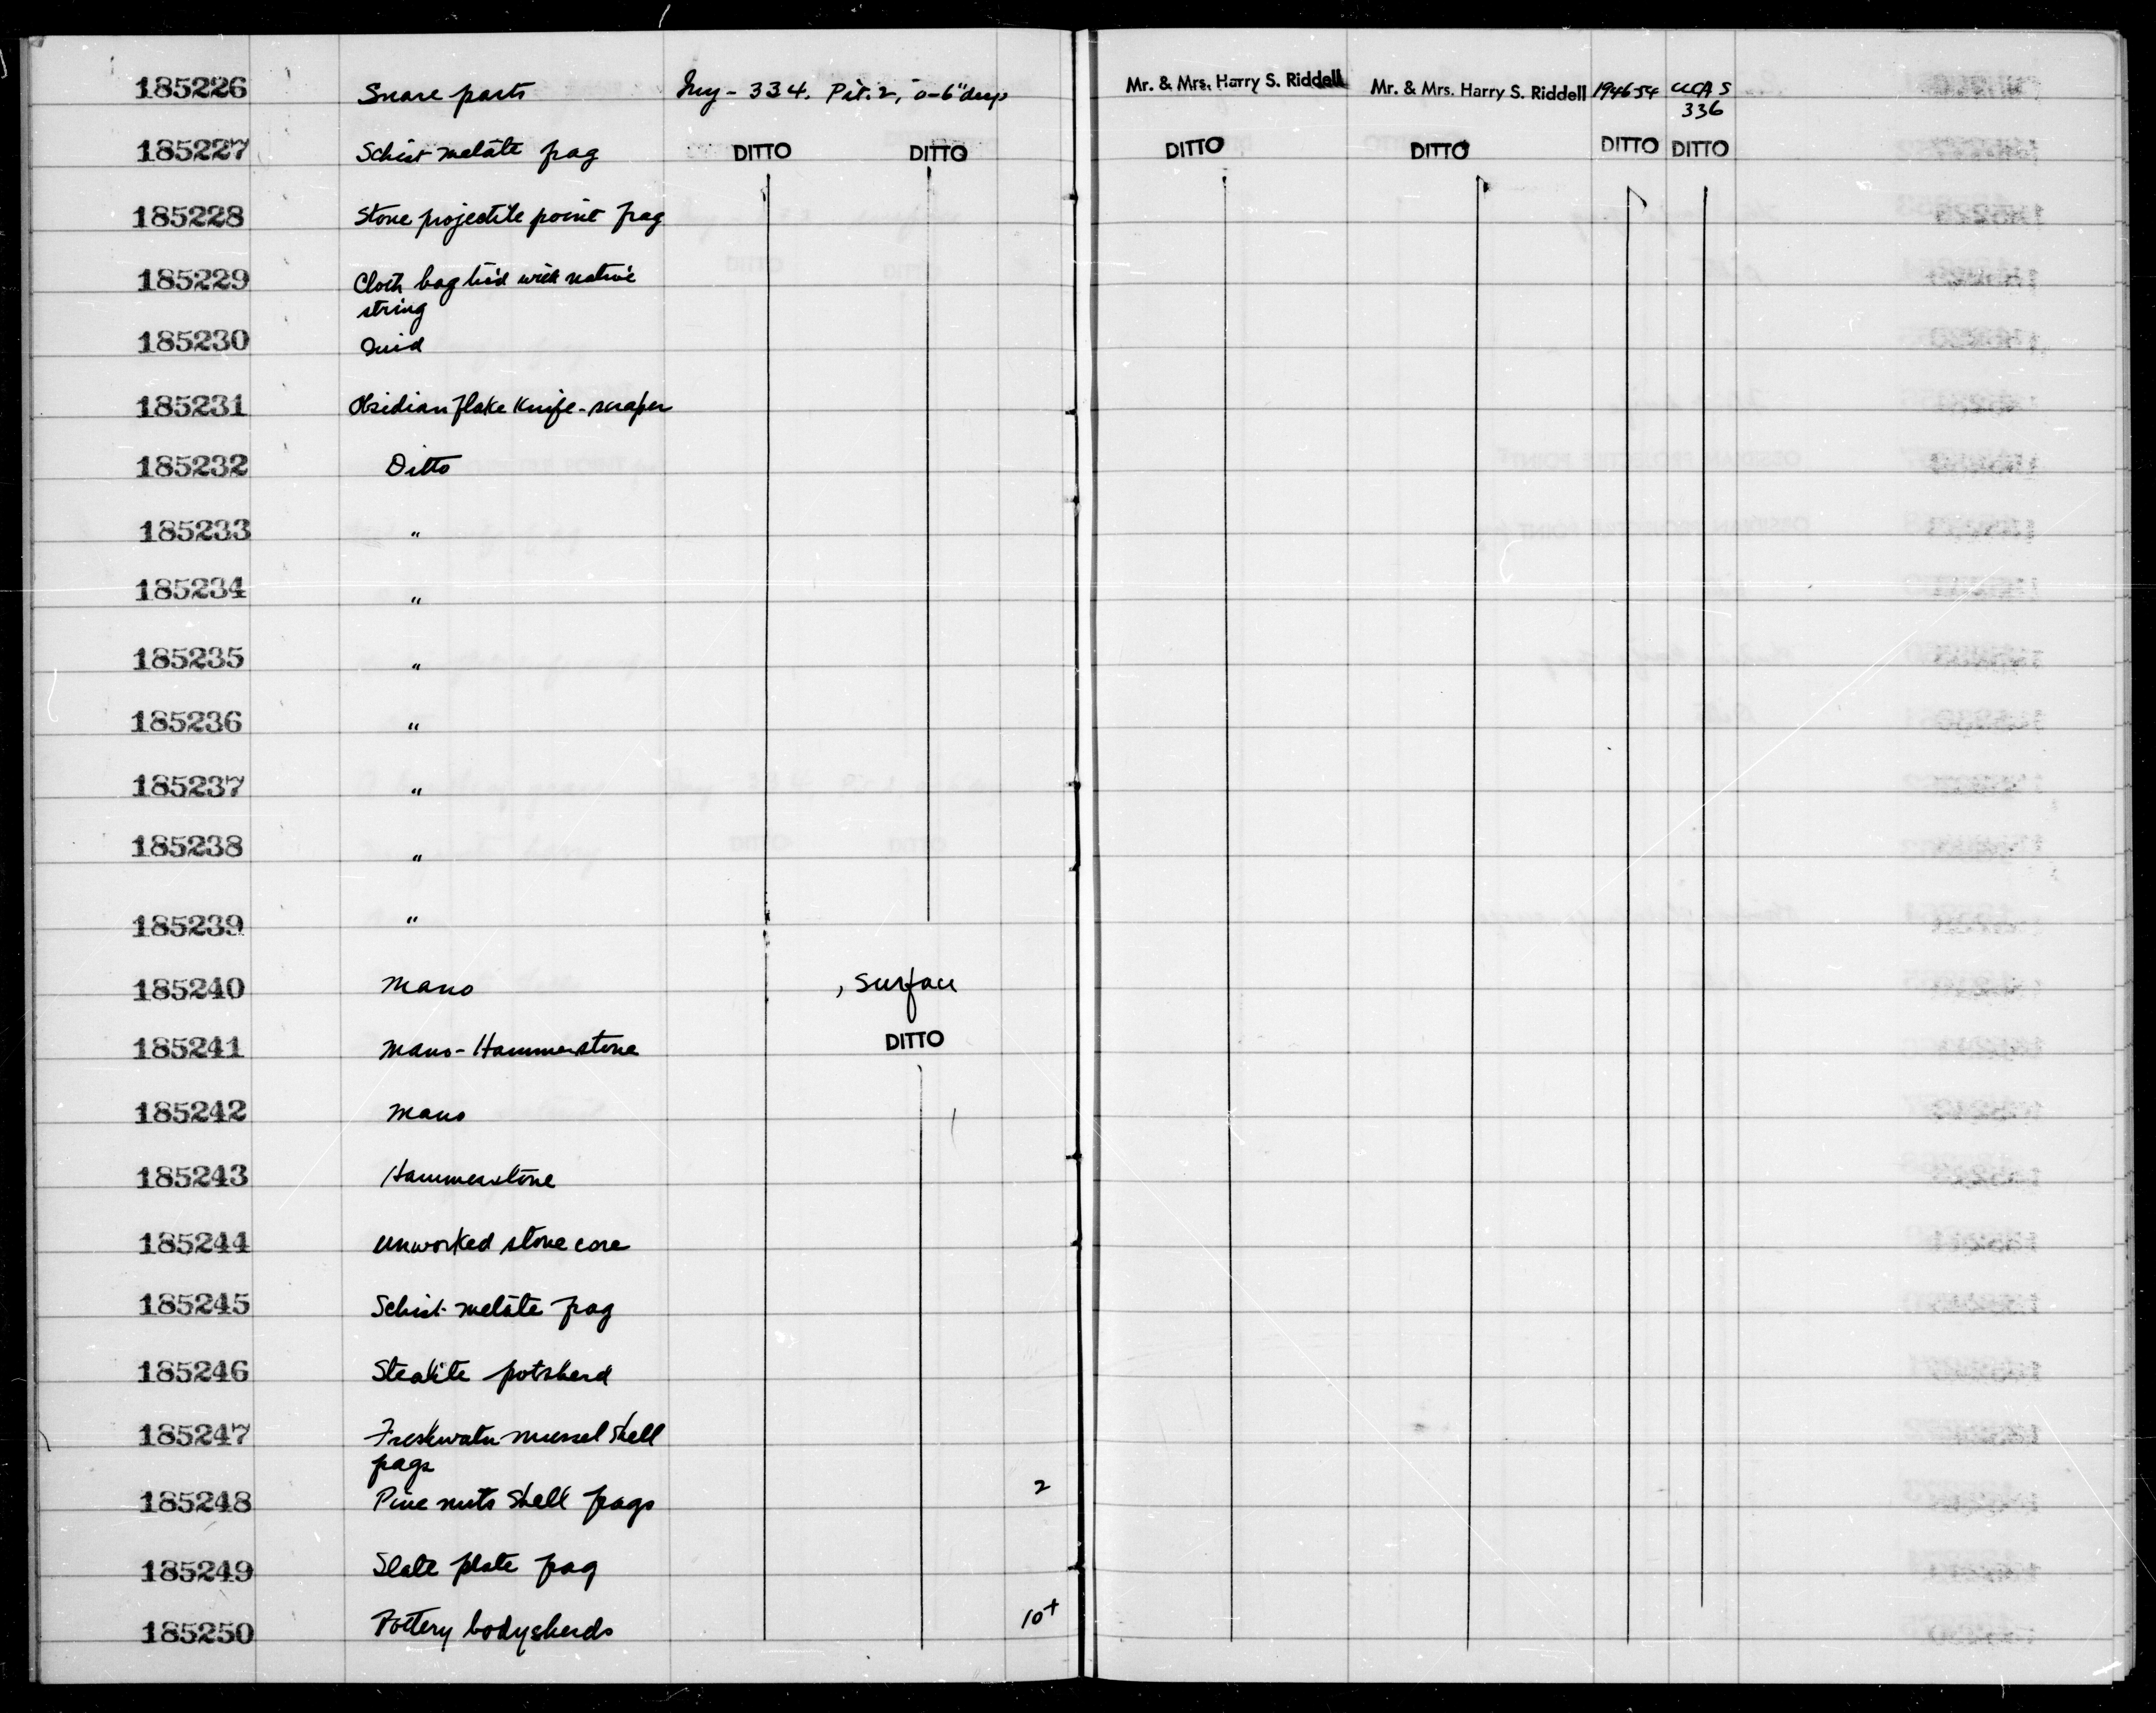 185226 Snare parts Iny-334. Pit. 2, 0-6" deep Mr. & Mrs. Harry S. Riddell Mr. & Mrs. Harry S. Riddell 1946-54 UCAS
336
185227 Schist metate frag DITTO DITTO DITTO DITTO DITTO DITTO
185228 Stone projectile point frag
185229 Cloth bag tied with native
string
185230 Quid
185231 Obsidian flake knife-scraper
185232 Ditto
185233 "
185234 "
185235 "
185236 "
185237 "
185238 "
185239 "
185240 Mano , Surface
185241 Mano-Hammerstone DITTO
185242 Mano
185243 Hammerstone
185244 Unworked stone core
185245 Schist metate frag
185246 Steatite potsherd
185247 Freshwater mussel shell
frags
185248 Pine nuts shell frags 2
185249 Slate plate frag
185250 Pottery bodysherds 10+